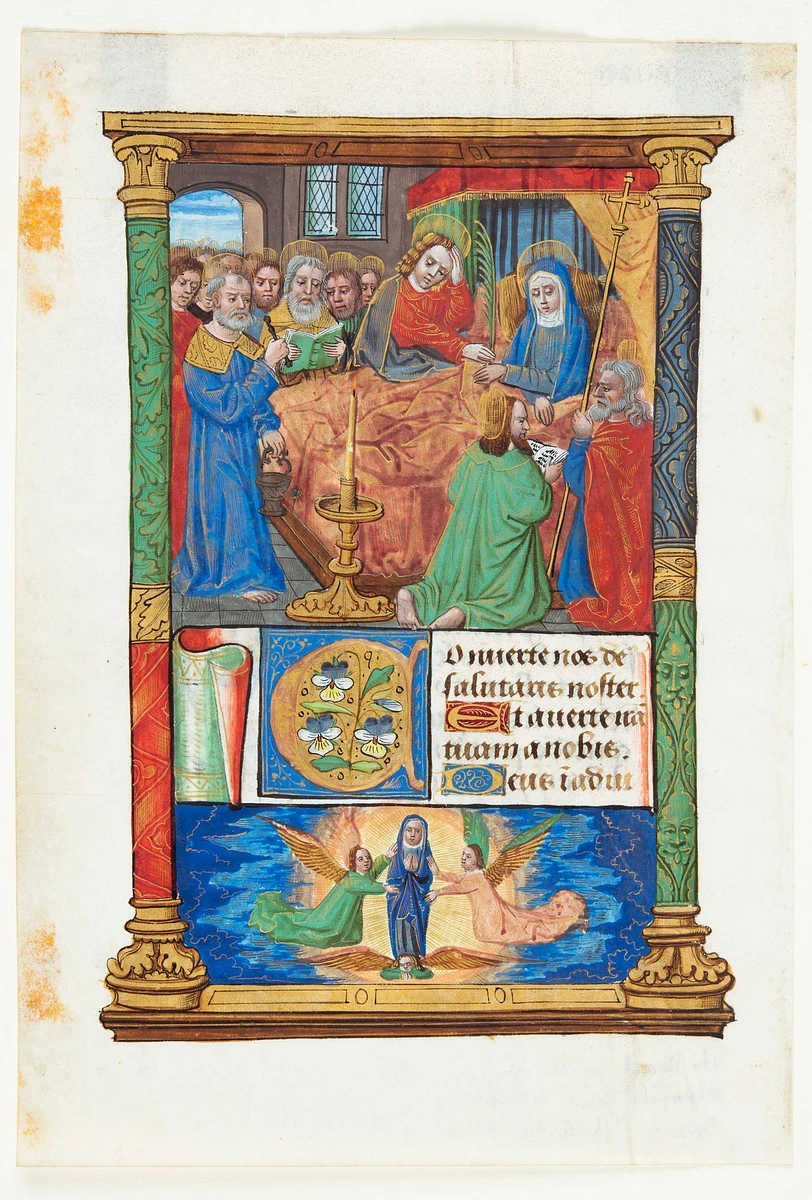 COnuerte nos de
salutaris noster.
Et auerte irã
tuam a nobis.
Deus ĩ adiu